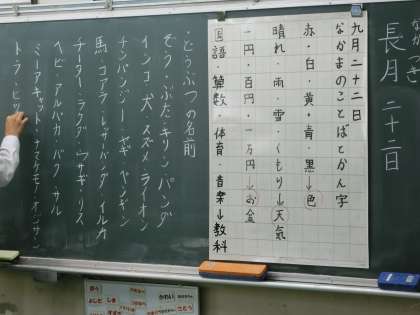 長月二十二日
九月二十二日
なかまのことばとかん字
赤・白・黄・青・黒↓色
晴れ・雨・雪・くもり↓天気
一円・百円・一万円↓お金
国語・算数・体育・音楽↓教科
・どうぶつの名前
ぞう・ぶた・キリン・パンダ
インコ・犬・スズメ・ライオン
チンパンジー・ヤギ・ペンギン
馬・コアラ・レッサーパンダ・イルカ
チーター・ラクダ・ウサギ・リス
ヘビ・アルパカ・バク・サル
ミーアキャット・ナマケモノ・オジサン
トラ・ヒツ